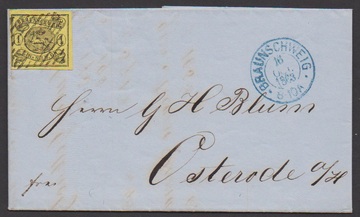 1 1
BRAUNSCHWEIG
16
1863
Herrn G H Blum
Osterode a/H
frei